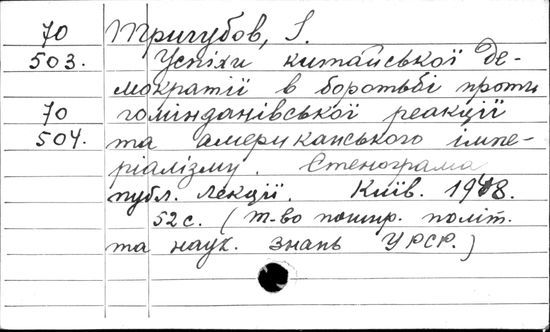 70 Тригубов, І.
503. Успіхи китайської де-
мократії в боротьбі проти
70 гомінданівської реакції
504. та американського імпе-
ріалізму. Стенограма
публ. лекції. Київ. 1948.
52 с. (т-во пошир. політ.
та наук. знань УРСР.)